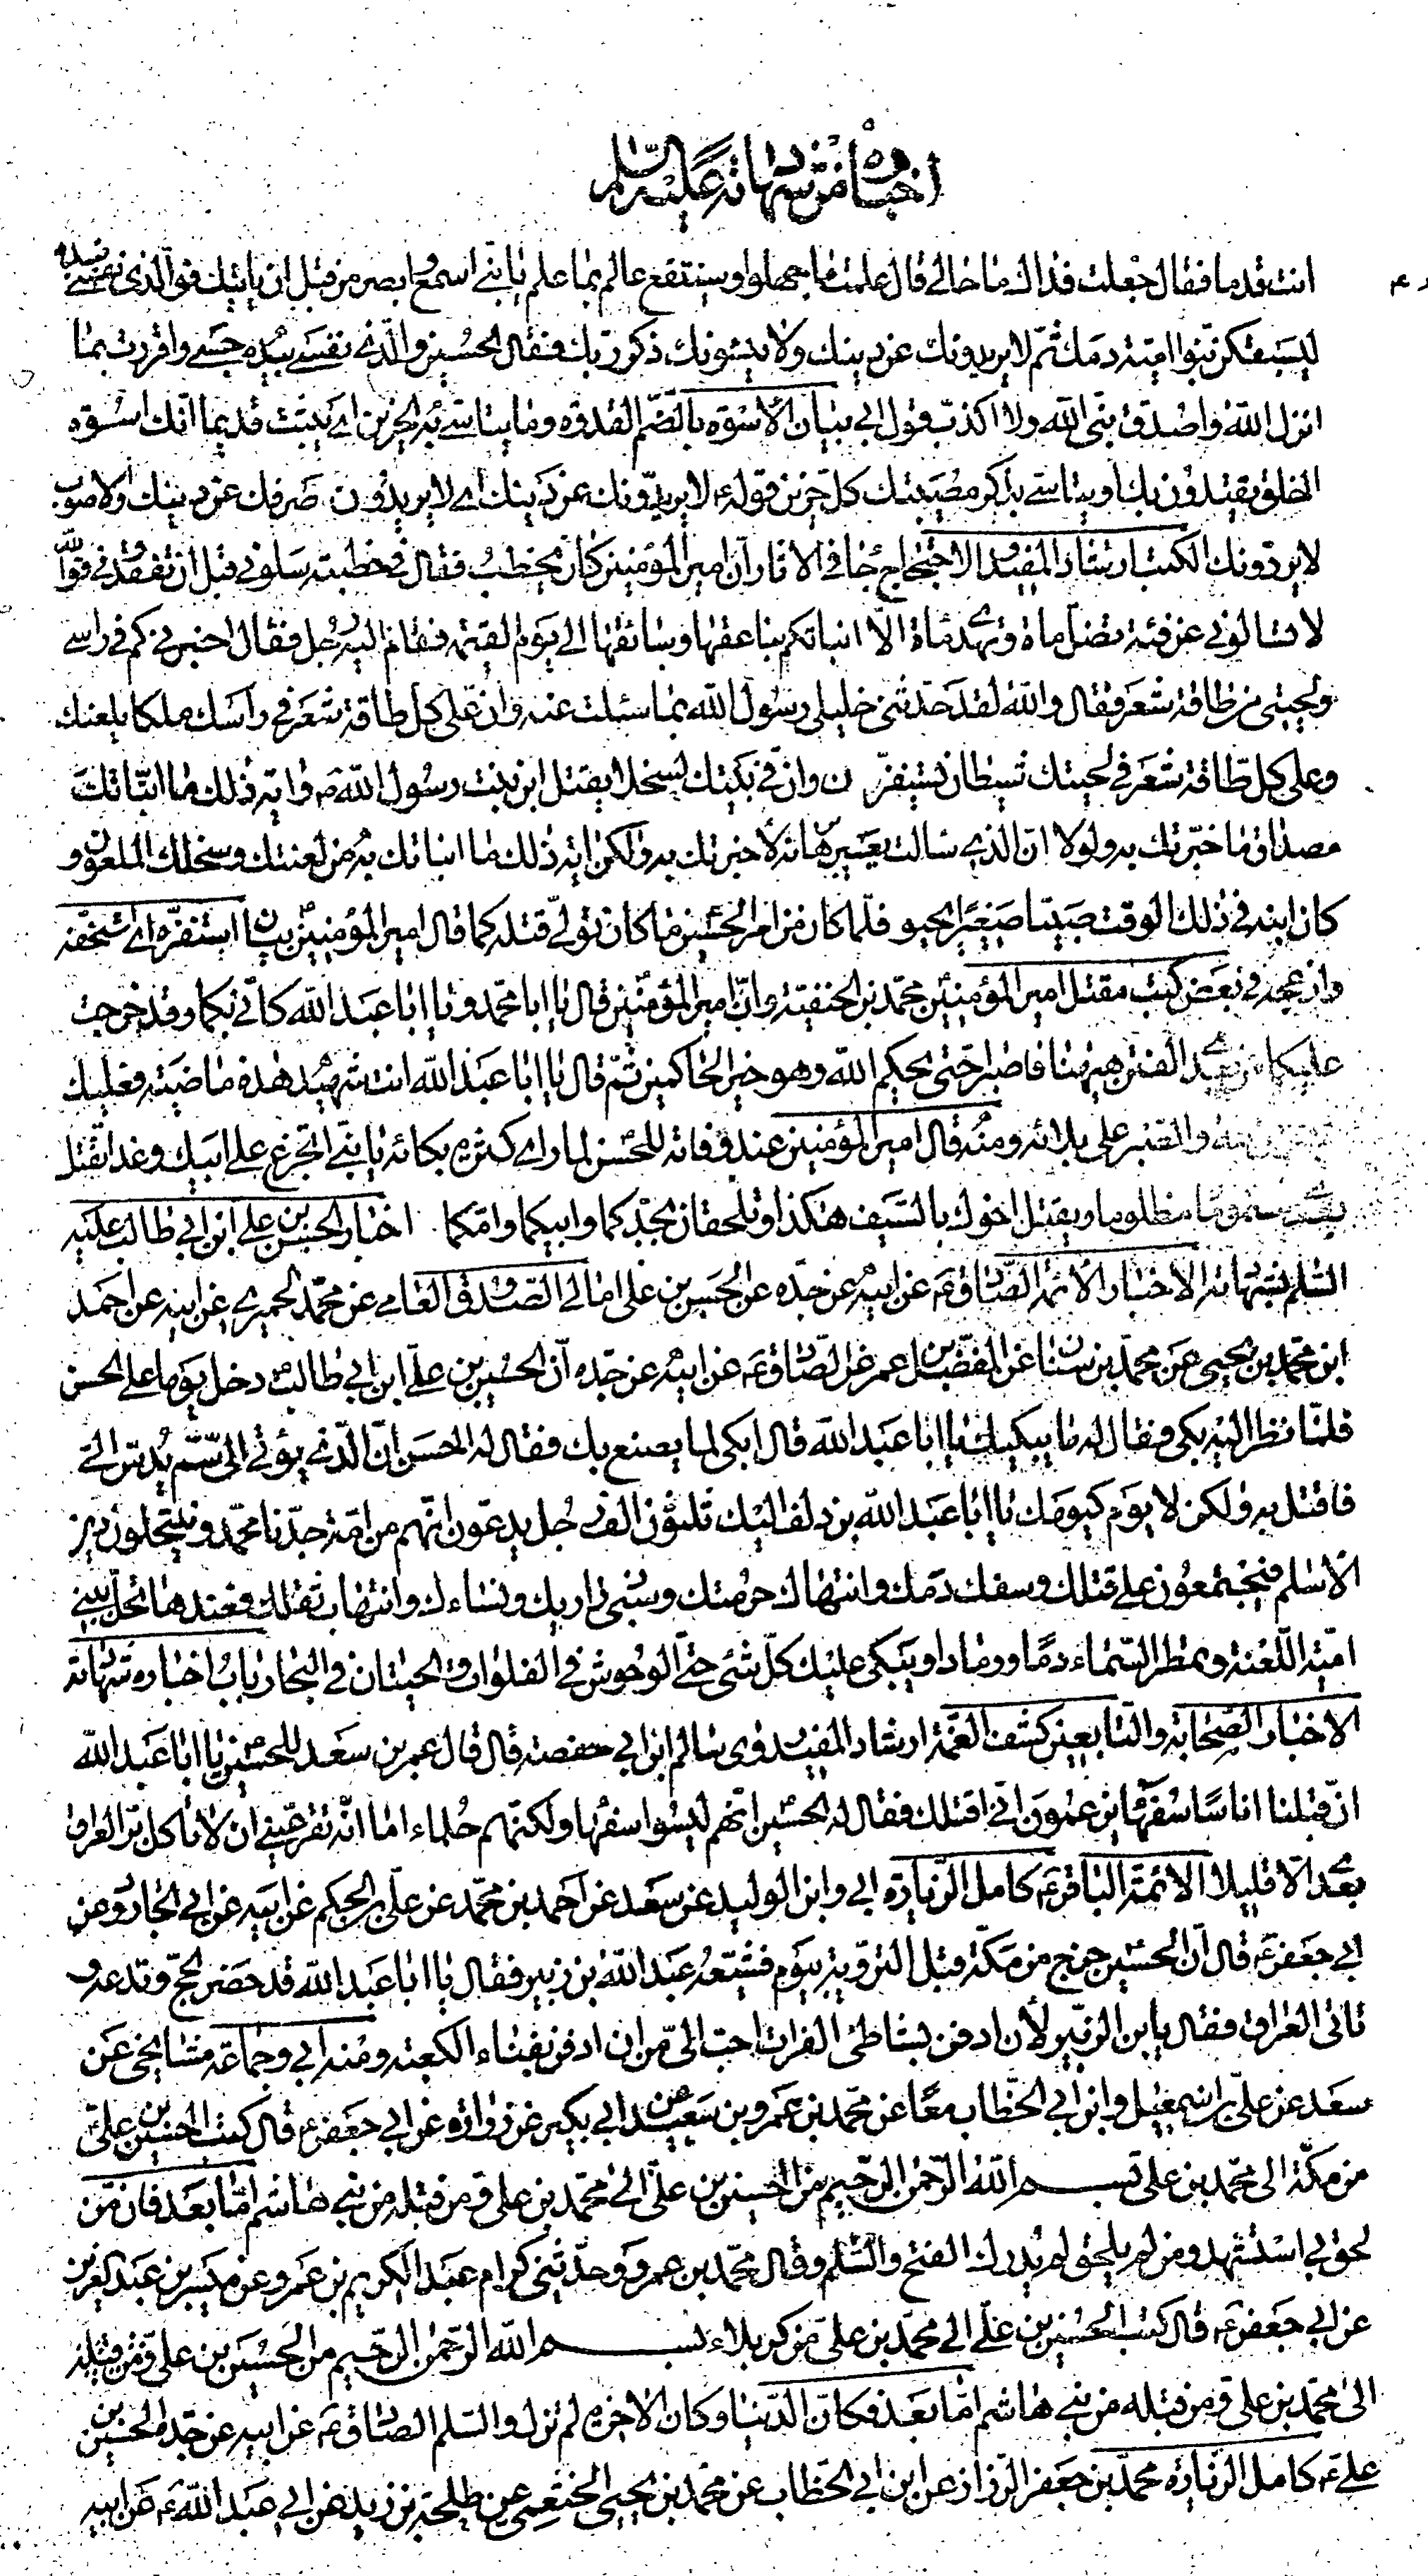 اخباره بشهادته عليه السلام
انت قدما فقال جعلت فداك ما حالي قال علمت ما جهلوا وسينتفع عالم بما علم يا بني اسمع وابصر من قبل ان ياتيك فوالذي نفسي بيده
ليسفكن بنوا امية دمك ثم لا يريدونك عن دينك ولا ينسونك ذكر ربك فقال الحسين والذي نفسي بيده حسبي واقررت بما
انزل الله واصدق نبي الله ولا اكذب قول ابي بيان الأسوة بالضم القدوة وما يتاسى به الحزين اي ثبت قديما انك اسوة
الخلق يقتدون بك او يتاسى بذكر مصيبتك كل حزين قوله لا يريدونك عن دينك اي لا يريدون صرفك عن دينك والاصوب
لا يردونك الكتب ارشاد المفيد الاحتجاج جا في الاثار ان امير المؤمنين كان يخطب فقال في خطبته سلوني قبل ان تفقدوني فوالله
لا تسالوني عن فئة تضل ماة وتهدي ماة الا انباتكم بناعقها وسائقها الى يوم القيمة فقام اليه رجل فقال اخبرني كم في راسي
ولحيتي من طاقة شعر فقال والله لقد حدثني خليلي رسول الله بما سئلت عنه وان على كل طاقة شعر في راسك ملكا يلعنك
وعلى كل طاقة شعر في لحيتك شيطان يستفزك وان في بيتك لسخلا يقتل ابن بنت رسول الله ص واية ذلك ما انباتك
مصداق ما خبرتك به ولولا ان الذي سالت يعسر برهانه لأخبرتك به ولكن اية ذلك ما انباتك به من لعنتك وسخلك الملعون و
كان ابنه في ذلك الوقت صبيا صغيرا يحبو فلما كان من امر الحسين ما كان تولى قتله كما قال امير المؤمنين بيان استفزه اي استخفه
وازعجه في بعض كتب مقتل امير المؤمنين محمد بن الحنفية وان امير المؤمنين قال يا ابا محمد ويا ابا عبد الله كاني بكما وقد خرجت
عليكما من بعدي الفتن ههنا فاصبرا حتى يحكم الله وهو خير الحاكمين ثم قال يا ابا عبد الله انت شهيد هذه الامة فعليك
بتقوى الله والصبر على بلائه ومنه قال امير المؤمنين عند وفاته للحسن لما راى كثرة بكائه يا بني اتجزع على ابيك وغدا تقتل
بعدي مسموما مظلوما ويقتل اخوك بالسيف هكذا وتلحقان بجدكما وابيكما وامكما اخبار الحسن بن علي ابن ابي طالب عليه
السلم بشهادته الاخبار الأئمة الصادق ع عن ابيه عن جده عن الحسن بن علي امالي الصدوق العامي عن محمد الحميري عن ابيه عن احمد
ابن محمد بن يحيى عن محمد بن سنان عن المفضل بن عمر عن الصادق ع عن ابيه عن جده ان الحسين بن علي ابن ابي طالب دخل يوما على الحسن
فلما نظر اليه بكى فقال له ما يبكيك يا ابا عبد الله قال ابكي لما يصنع بك فقال له الحسن ان الذي يؤتى الي سم يدس الي
فاقتل به ولكن لا يوم كيومك يا ابا عبد الله يزدلف اليك ثلثون الف رجل يدعون انهم من امة جدنا محمد وينتحلون دين
الاسلم فيجتمعون على قتلك وسفك دمك وانتهاك حرمتك وسبي ذراريك ونساءك وانتهاب ثقلك فعندها تحل ببني
امية اللعنة وتمطر السماء دما ورمادا ويبكي عليك كل شئ حتى الوحوش في الفلوات والحيتان في البحار باب اخباره بشهادته
الاخبار الصحابة والتابعين كشف الغمة ارشاد المفيد وى سالم ابن ابي حفصة قال قال عمر بن سعد للحسين يا ابا عبد الله
ان قبلنا اناسا سفهاء يزعمون اني اقتلك فقال له الحسين انهم ليسوا سفهاء ولكنهم حلماء اما انه تقر عيني ان لا تاكل بر العراق
بعدي الا قليلا الائمة الباقر ع كامل الزيارة ابي وابن الوليد عن سعد عن احمد بن محمد عن علي بن الحكم عن ابيه عن ابي الجارود عن
ابي جعفر ع قال ان الحسين خرج من مكة قبل التروية بيوم فشيعه عبد الله بن زبير فقال يا ابا عبد الله قد حضر الحج وتدعه و
تاتي العراق فقال يا بن الزبير لأن ادفن بشاطئ الفرات احب الي من ان ادفن بفناء الكعبة ومنه ابي وجماعة مشايخي عن
سعد عن علي بن اسمعيل وابن ابي الخطاب معا عن محمد بن عمرو بن سعيد عن ابي بكير عن زرارة عن ابي جعفر ع قال كتب الحسين بن علي
من مكة الى محمد بن علي بسم الله الرحمن الرحيم من الحسين بن علي الى محمد بن علي ومن قبله من بني هاشم اما بعد فان من
لحق بي استشهد ومن لم يلحق لم يدرك الفتح والسلم وقال محمد بن عمرو وحدثني كرام عبد الكريم بن عمرو عن ميسر بن عبد العزيز
عن ابي جعفر ع قال كتب الحسين بن علي الى محمد بن علي من كربلاء بسم الله الرحمن الرحيم من الحسين بن علي ومن قبله
الى محمد بن علي ومن قبله من بني هاشم اما بعد فكان الدنيا وكان الاخرة لم تزل والسلم الصادق ع عن ابيه عن جده الحسين بن
علي ع كامل الزيارة محمد بن جعفر الرزاز عن ابن ابي الخطاب عن محمد بن يحيى الخثعمي عن طلحة بن زيد عن ابي عبد الله ع عن ابيه